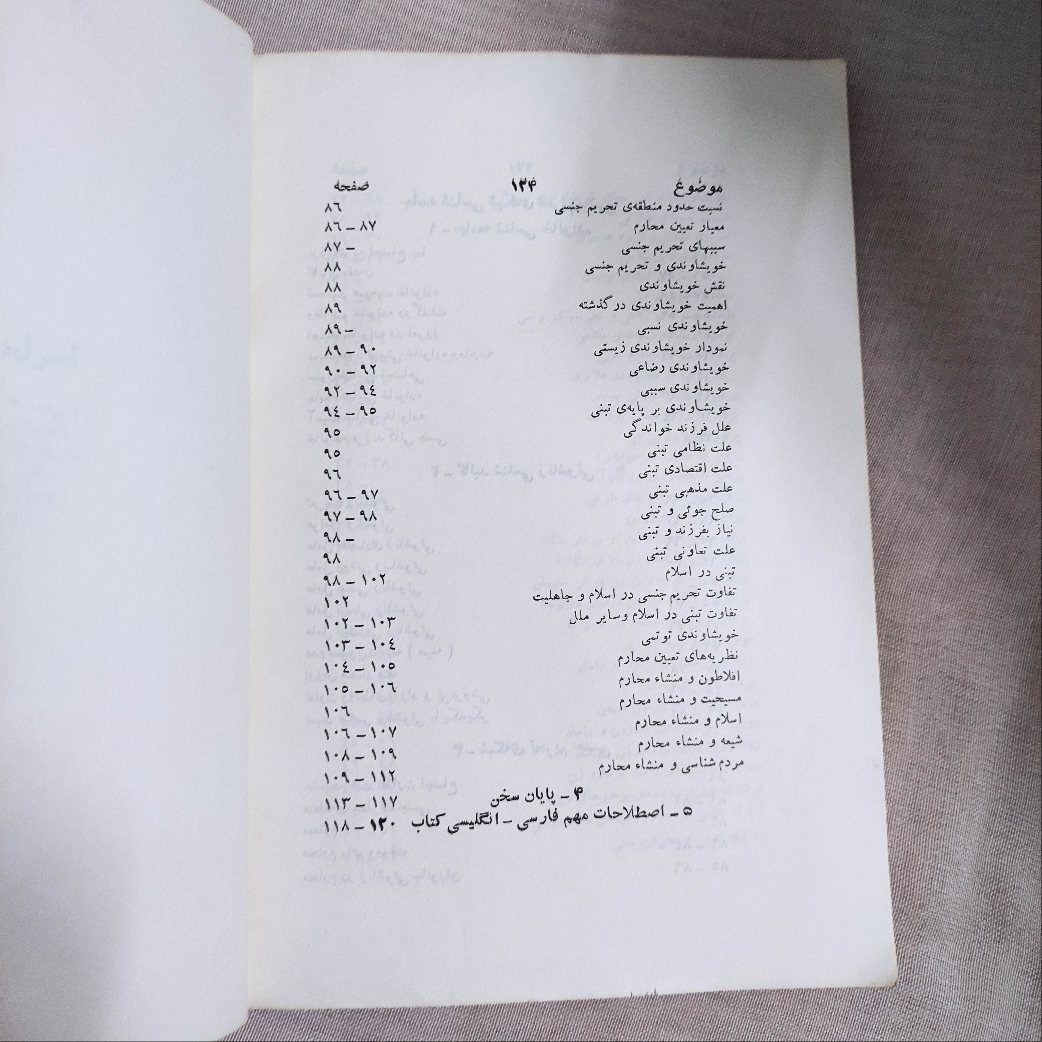 موضوع ۱۲۴ صفحه
نسبت حدود منطقه‌ی تحریم جنسی ۸۶
معیار تعیین محارم ۸۷ – ۸۶
سببهای تحریم جنسی – ۸۷
خویشاوندی و تحریم جنسی ۸۸
نقش خویشاوندی ۸۸
اهمیت خویشاوندی درگذشته ۸۹
خویشاوندی نسبی – ۸۹
نمودار خویشاوندی زیستی ۹۰ – ۸۹
خویشاوندی رضاعی ۹۲ – ۹۰
خویشاوندی سببی ۹۴ – ۹۲
خویشاوندی بر پایه‌ی تبنی ۹۵ – ۹۴
علل فرزند خواندگی ۹۵
علت نظامی تبنی ۹۵
علت اقتصادی تبنی ۹۶
علت مذهبی تبنی ۹۷ – ۹۶
صلح جوئی و تبنی ۹۸ – ۹۷
نیاز بفرزند و تبنی – ۹۸
علت تعاونی تبنی ۹۸
تبنی در اسلام ۱۰۲ – ۹۸
تفاوت تحریم جنسی در اسلام و جاهلیت ۱۰۲
تفاوت تبنی در اسلام وسایر ملل ۱۰۳ – ۱۰۲
خویشاوندی توتمی ۱۰۴ – ۱۰۳
نظریه‌های تعیین محارم ۱۰۵ – ۱۰۴
افلاطون و منشاء محارم ۱۰۶ – ۱۰۵
مسیحیت و منشاء محارم ۱۰۶
اسلام و منشاء محارم ۱۰۷ – ۱۰۶
شیعه و منشاء محارم ۱۰۹ – ۱۰۸
مردم شناسی و منشاء محارم ۱۱۲ – ۱۰۹
۴ – پایان سخن ۱۱۷ – ۱۱۳
۵ – اصطلاحات مهم فارسی – انگلیسی کتاب ۱۲۰ – ۱۱۸